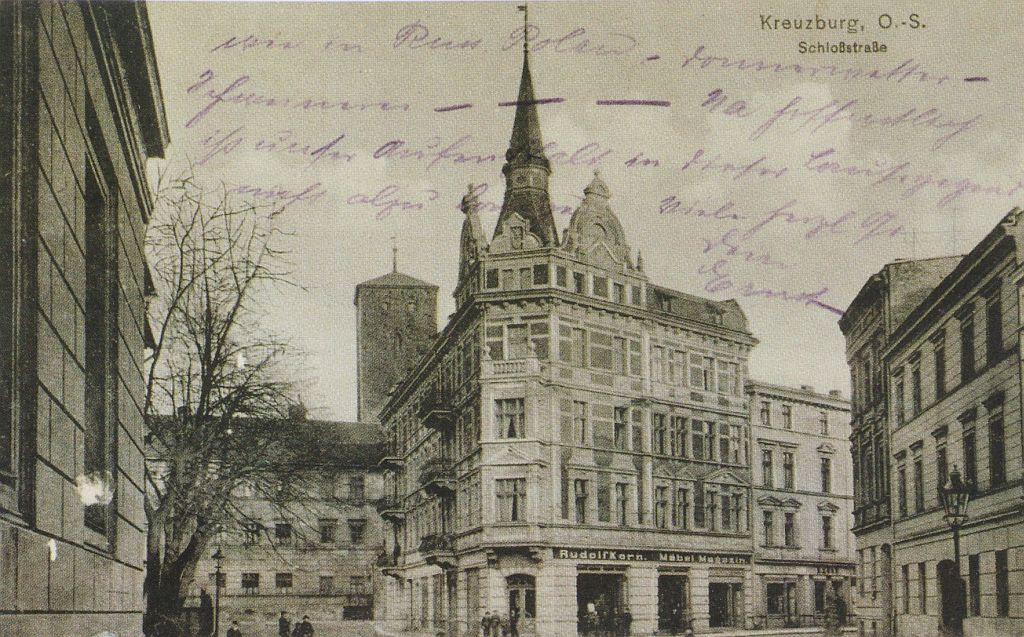 Kreuzburg, O.-S.
Schloßstraße
wie in Russ. Polen – Donnerwetter –
– – Na hoffentlich
ist unser Aufenthalt in dieser Lausegegend
nicht allzu Viele herzl. Gr.
Dein
Ernst
Rudolf Korn. Möbel Magazin